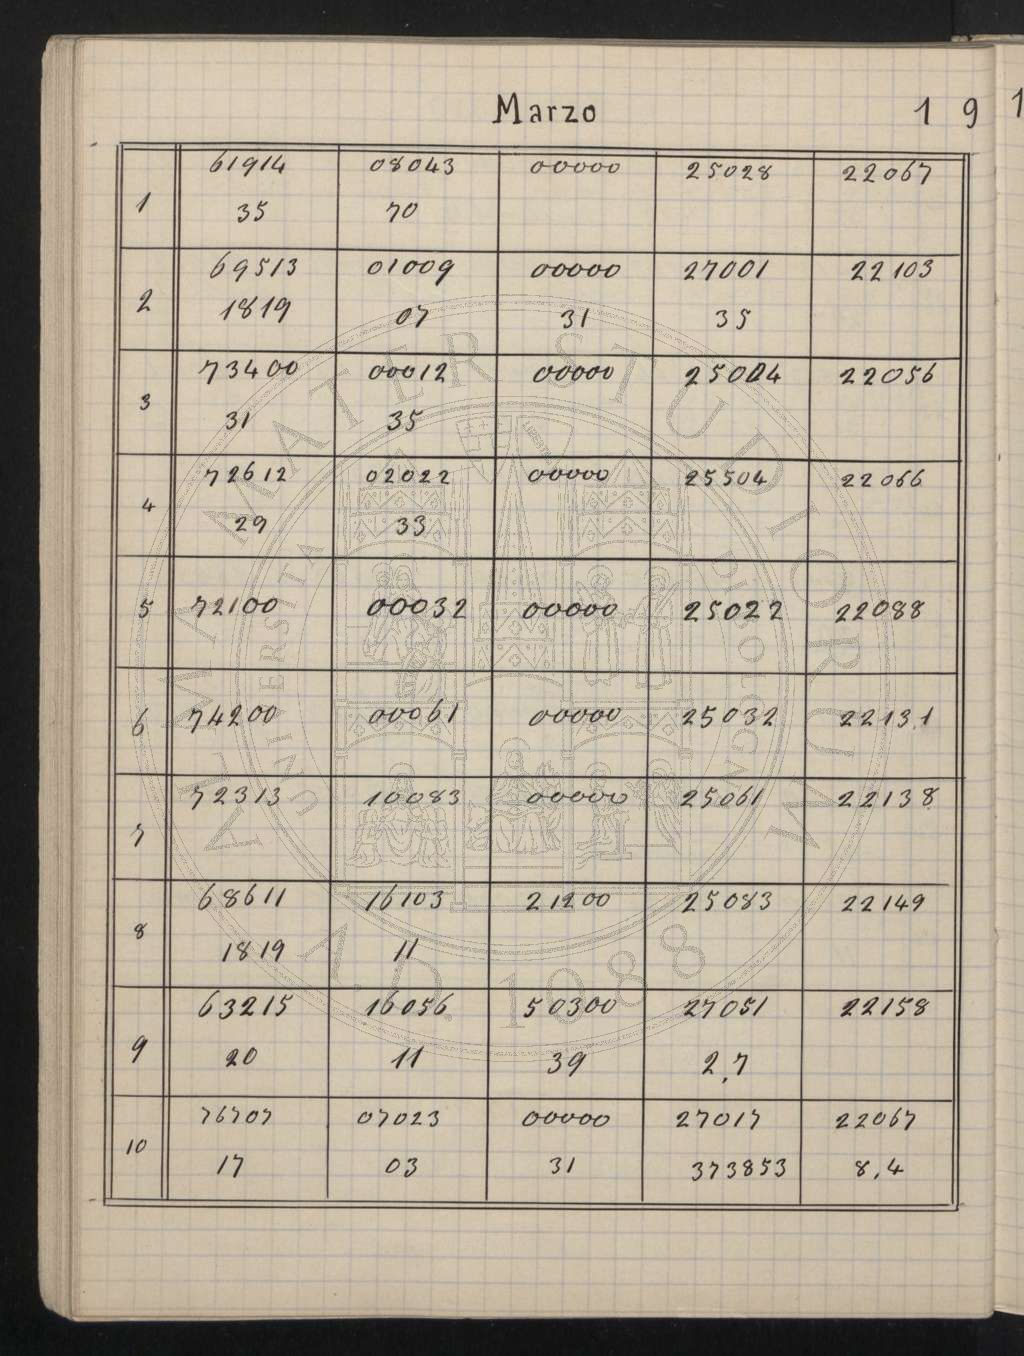 Marzo 191
61914 08043 00000 25028 22067
1
35 70
69513 01009 00000 27001 22103
2
1819 07 31 35
73400 00012 00000 25004 22056
3
31 35
72612 02022 00000 25504 22066
4
29 33
5 72100 00032 00000 25022 22088
6 74200 00061 00000 25032 22131
72313 10083 00000 25061 22138
7
68611 16103 21200 25083 22149
8
1819 11
63215 16056 50300 27051 22158
9
20 11 39 2,7
76707 07023 00000 27017 22067
10
17 03 31 373853 8,4
ALMA MATER STUDIORUM
A.D. 1088
UNIVERSITÀ DI BOLOGNA